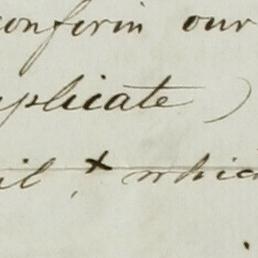 confirm our
uplicate)
il, x which